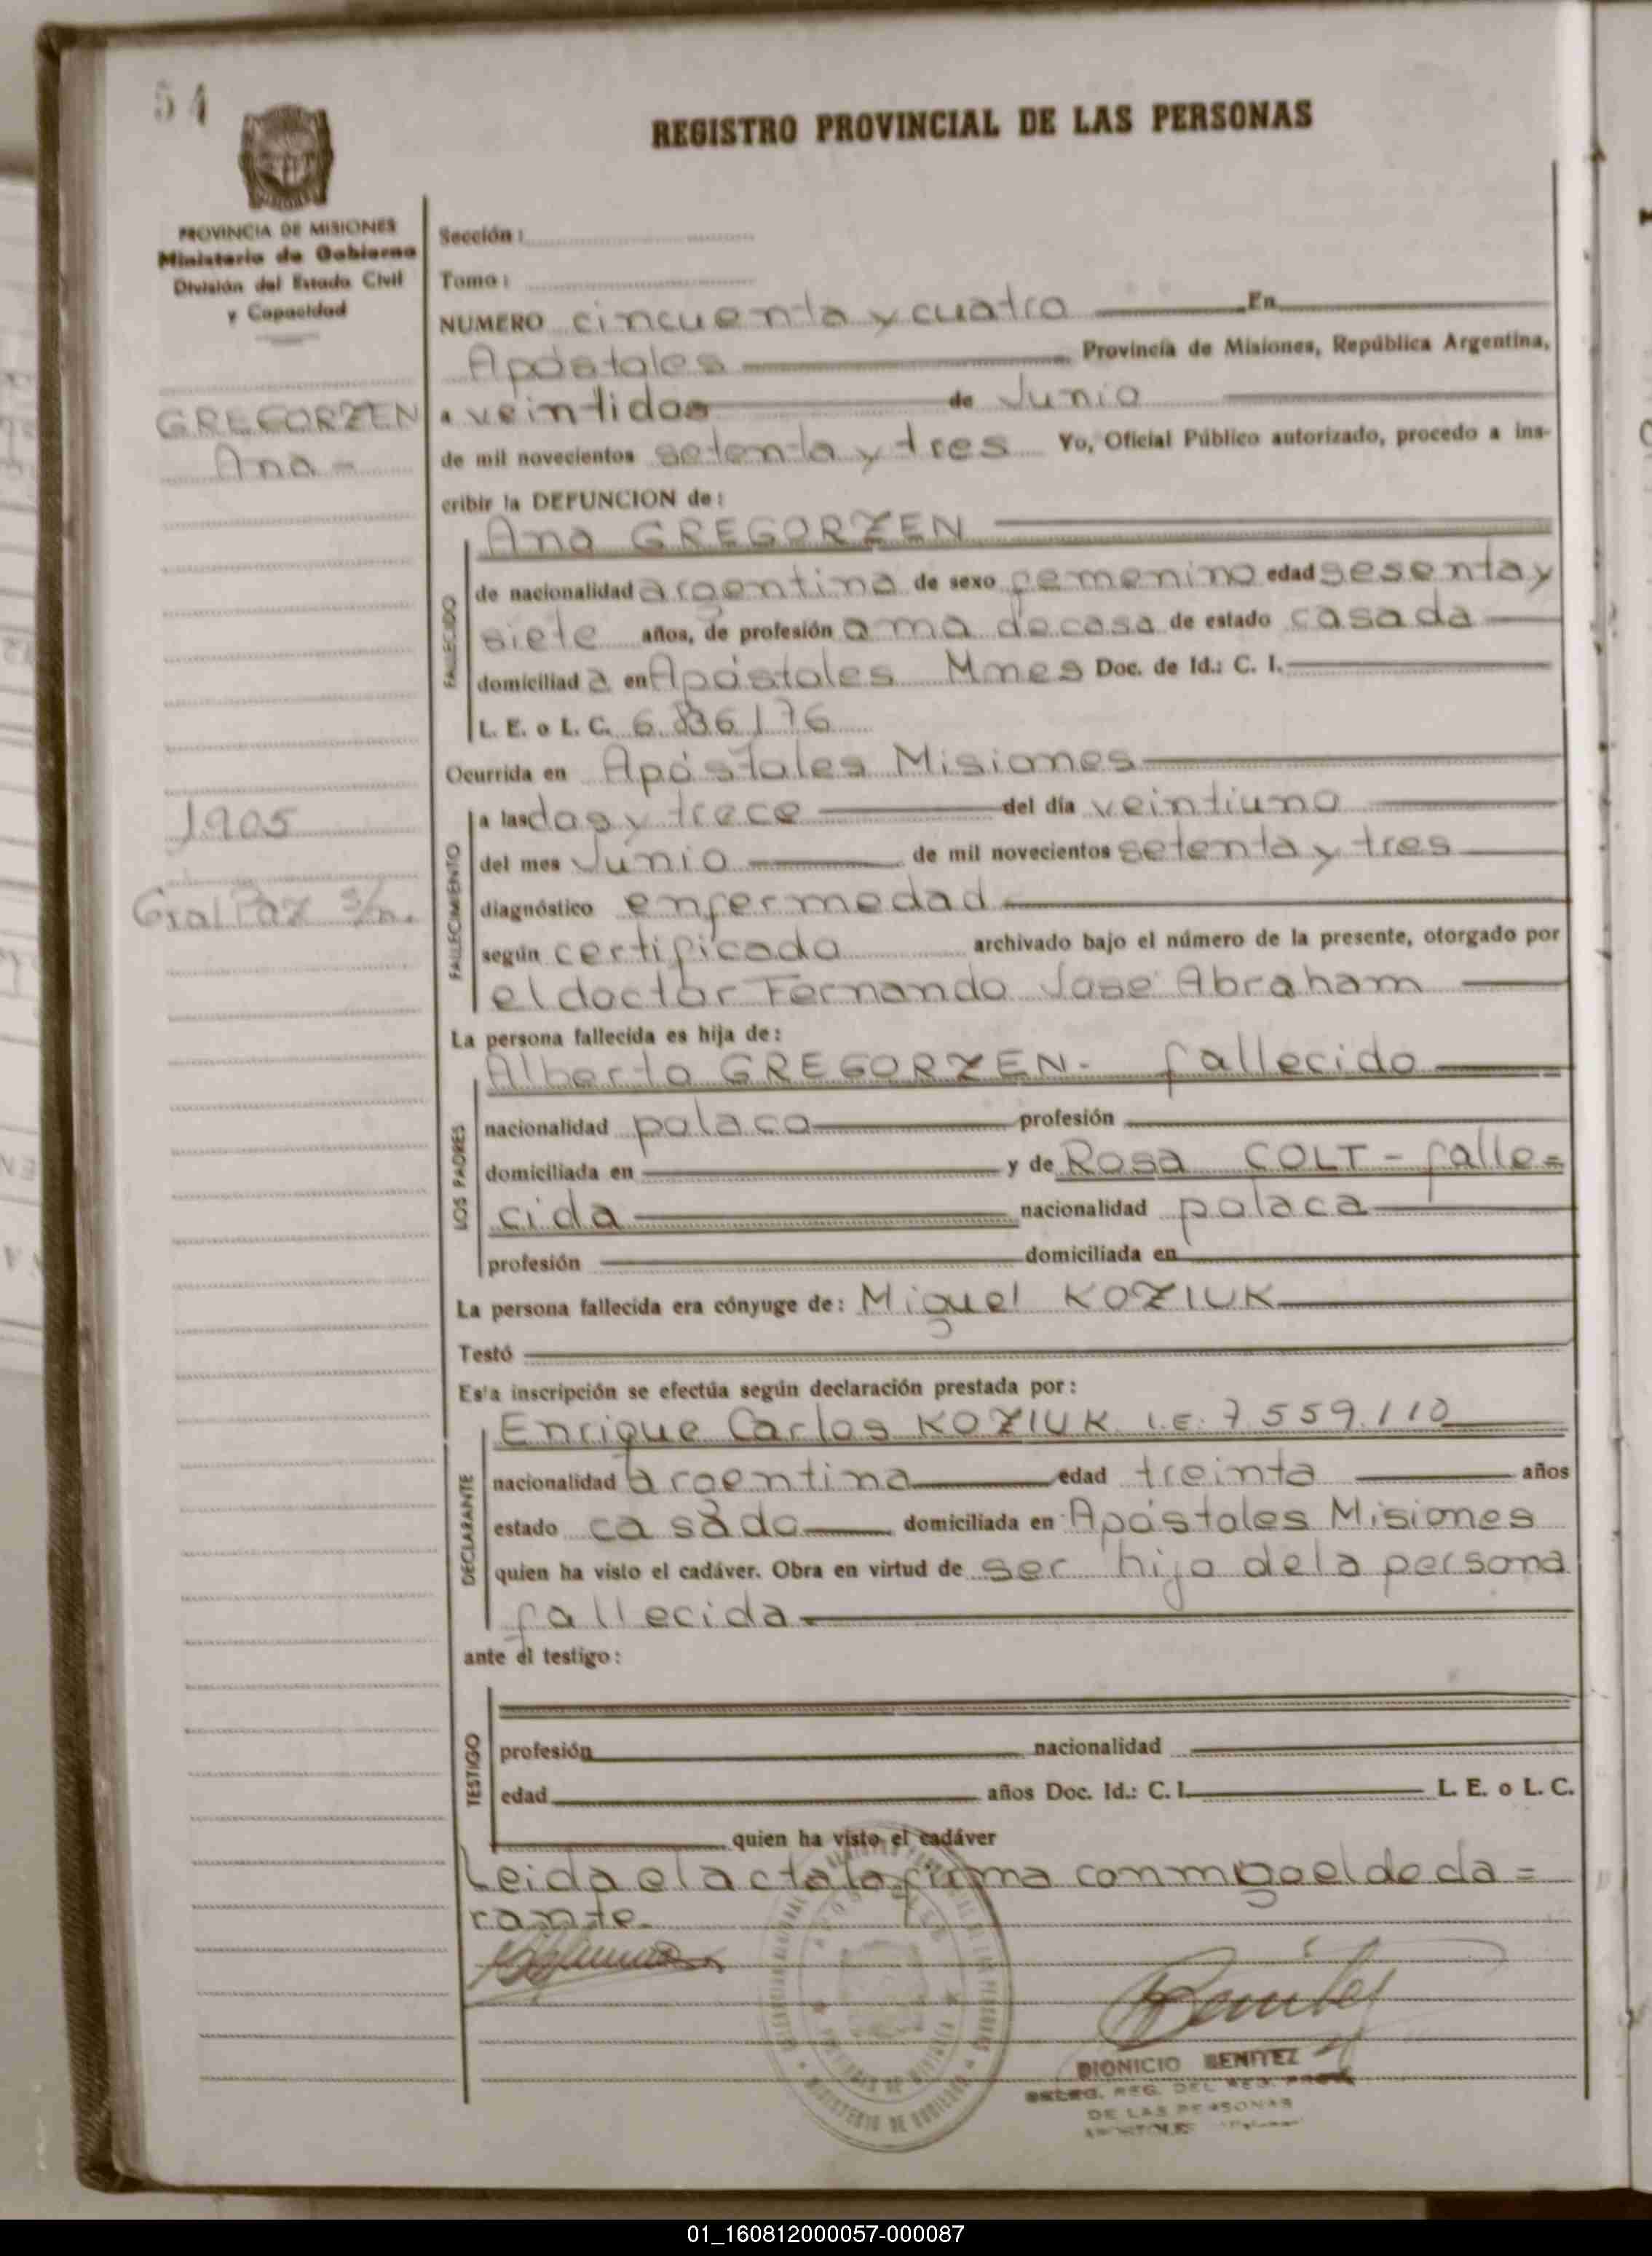 54
REGISTRO PROVINCIAL DE LAS PERSONAS
PROVINCIA DE MISIONES
Ministerio de Gobierno
División del Estado Civil
y Capacidad
GREGORZEN
Ana -
1905
Gral Paz s/n.
Sección:
Tomo:
NUMERO cincuenta y cuatro En
Apóstoles Provincia de Misiones, República Argentina,
a veintidos de Junio
de mil novecientos setenta y tres Yo, Oficial Público autorizado, procedo a ins-
cribir la DEFUNCION de:
Ana GREGORZEN
FALLECIDO
de nacionalidad argentina de sexo femenino edad sesenta y
siete años, de profesión ama de casa de estado casada
domiciliad a en Apóstoles Mnes Doc. de Id.: C. I.
L. E. o L. C. 6.836.176
Ocurrida en Apóstoles Misiones
FALLECIMIENTO
a las dos y trece del día veintiuno
del mes Junio de mil novecientos setenta y tres
diagnóstico enfermedad
según certificado archivado bajo el número de la presente, otorgado por
el doctor Fernando José Abraham
La persona fallecida es hija de:
Alberto GREGORZEN- fallecido
LOS PADRES
nacionalidad polaca profesión
domiciliada en y de Rosa COLT - falle=
cida nacionalidad polaca
profesión domiciliada en
La persona fallecida era cónyuge de: Miguel KOZIUK
Testó
Esta inscripción se efectúa según declaración prestada por:
Enrique Carlos KOZIUK L.E. 7.559.110
DECLARANTE
nacionalidad argentina edad treinta años
estado casado domiciliada en Apóstoles Misiones
quien ha visto el cadáver. Obra en virtud de ser hijo de la persona
fallecida
ante el testigo:
TESTIGO
profesión nacionalidad
edad años Doc. Id.: C. I. L. E. o L. C.
quien ha visto el cadáver
Leida el acta la firma conmigo el decla=
rante.
DIONICIO BENITEZ
DE LAS PERSONAS
01_160812000057-000087